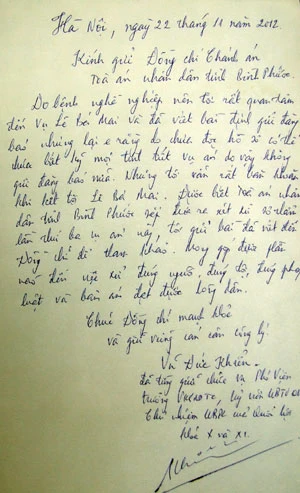 Hà Nội, ngày 22 tháng 11 năm 2012.
Kính gửi Đồng chí Chánh án
Toà án nhân dân tỉnh Bình Phước.
Do bệnh nghề nghiệp nên tôi rất quan tâm
đến vụ Lê Bá Mai và đã viết bài định gửi đăng
báo nhưng lại e rằng do chưa đọc hồ sơ có thể
chưa bắt kịp mọi tình tiết vụ án do vậy không
gửi đăng báo nữa. Nhưng tôi vẫn rất băn khoăn
khi kết tội Lê Bá Mai. Được biết Toà án nhân
dân tỉnh Bình Phước sắp đưa ra xét xử sơ thẩm
lần thứ ba vụ án này, tôi gửi bài đã viết đến
Đồng chí để tham khảo. Mong góp được phần
nào đến việc xử đúng người, đúng tội, đúng pháp
luật và bản án đạt được lòng dân.
Chúc Đồng chí mạnh khỏe
và giữ vững cán cân công lý.
Vũ Đức Khiển
đã từng giữ chức vụ Phó Viện
trưởng VKSNDTC, Uỷ viên UBTVQH
Chủ nhiệm UBPL của Quốc hội
khóa X và XI.